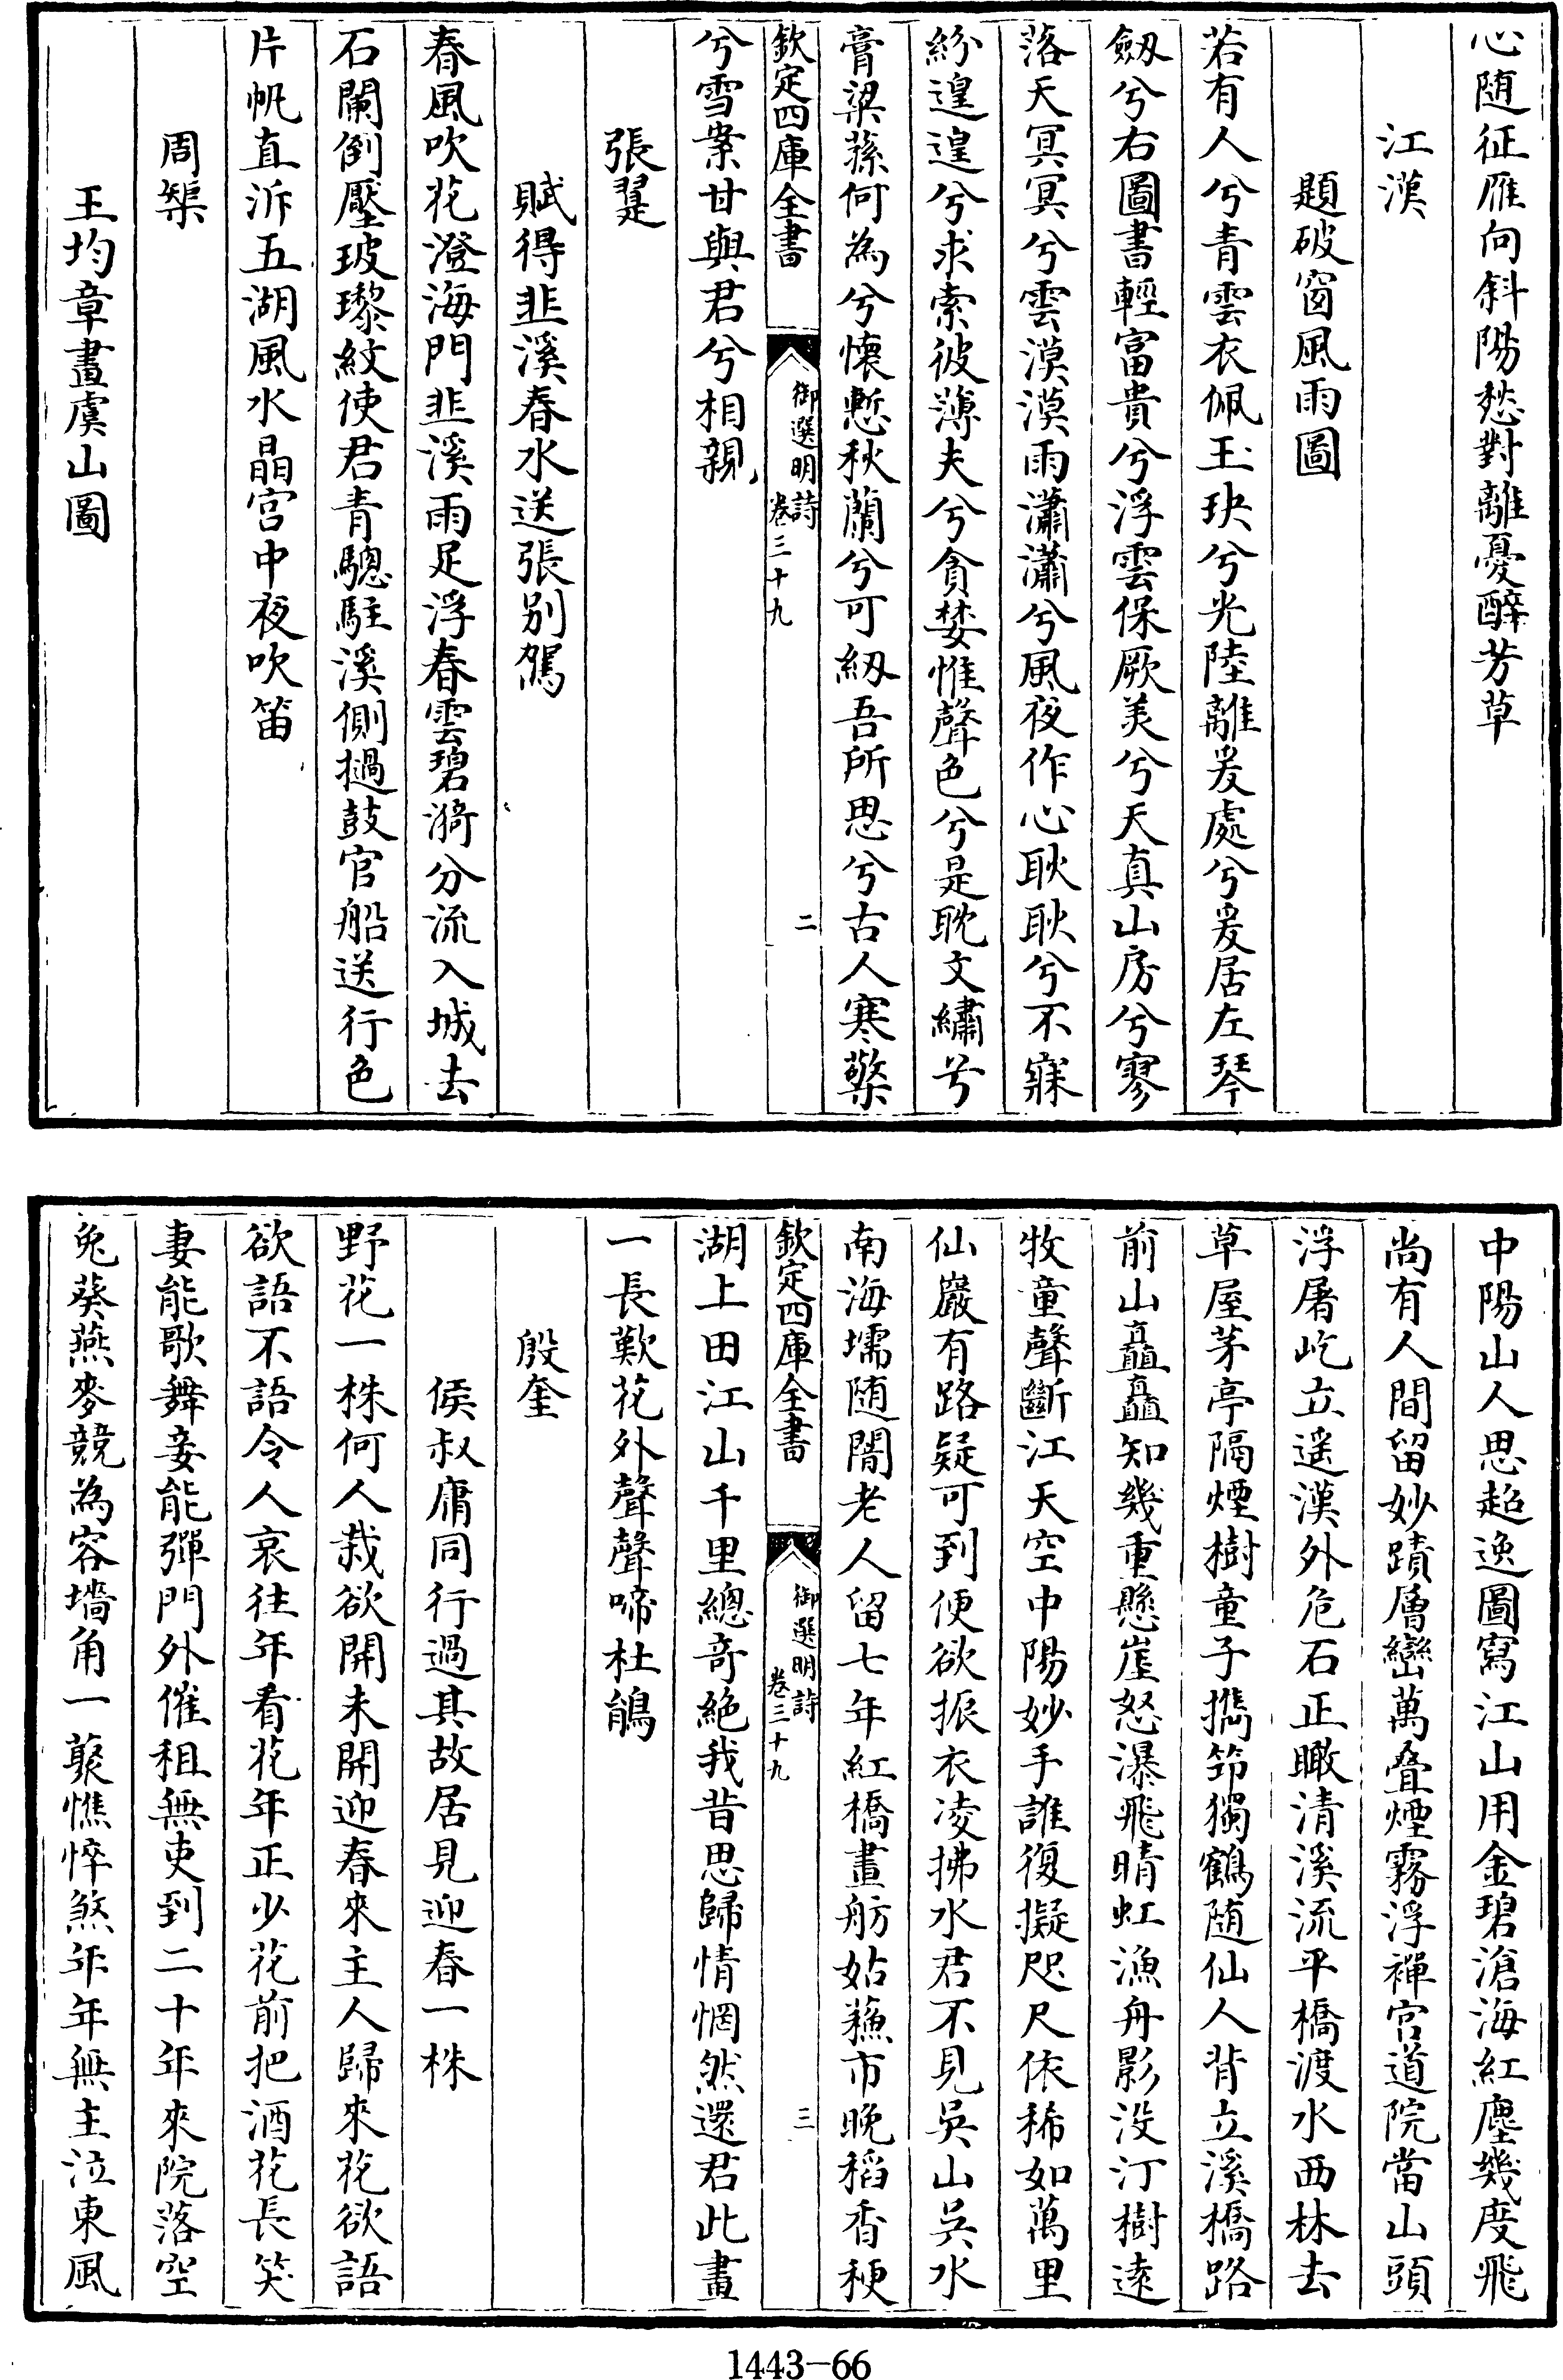 心随征雁向斜陽愁對離憂醉芳草
江漢
題破窗風雨圖
若有人兮青雲衣佩玉玦兮光陸離爰處兮爰居左琴
劔兮右圖書輕富貴兮浮雲保厥美兮天真山房兮寥
落天冥冥兮雲漠漠雨瀟瀟兮風夜作心耿耿兮不寐
紛遑遑兮求索彼薄夫兮貪婪惟聲色兮是耽文繡兮
膏粱蓀何為兮懷慙秋蘭兮可紉吾所思兮古人寒檠
欽定四庫全書
御選明詩
卷三十九
二
兮雪案甘與君兮相親
張翨
賦得韭溪春水送張別駕
春風吹花澄海門韭溪雨足浮春雲碧漪分流入城去
石闌倒壓玻瓈紋使君青驄駐溪側撾鼓官船送行色
片帆直泝五湖風水晶宮中夜吹笛
周榘
王均章畫虞山圖
中陽山人思超逸圖寫江山用金碧滄海紅塵幾度飛
尚有人間留妙蹟層巒萬叠煙霧浮禪宮道院當山頭
浮屠屹立遥漢外危石正瞰清溪流平橋渡水西林去
草屋茅亭隔煙樹童子携筇獨鶴随仙人背立溪橋路
前山矗矗知幾重懸崖怒瀑飛晴虹漁舟影没汀樹遠
牧童聲斷江天空中陽妙手誰復擬咫尺依稀如萬里
仙巖有路疑可到便欲振衣凌拂水君不見吳山吳水
南海壖随闇老人留七年紅橋畫舫姑蘓市晚稻香秔
欽定四庫全書
御選明詩
卷三十九
三
湖上田江山千里總奇絶我昔思歸情惘然還君此畫
一長歎花外聲聲啼杜鵑
殷奎
侯叔庸同行過其故居見迎春一株
野花一株何人栽欲開未開迎春來主人歸來花欲語
欲語不語令人哀往年看花年正少花前把酒花長笑
妻能歌舞妾能彈門外催租無吏到二十年來院落空
兔葵燕麥競為容墻角一藂憔悴煞年年無主泣東風
1443-66